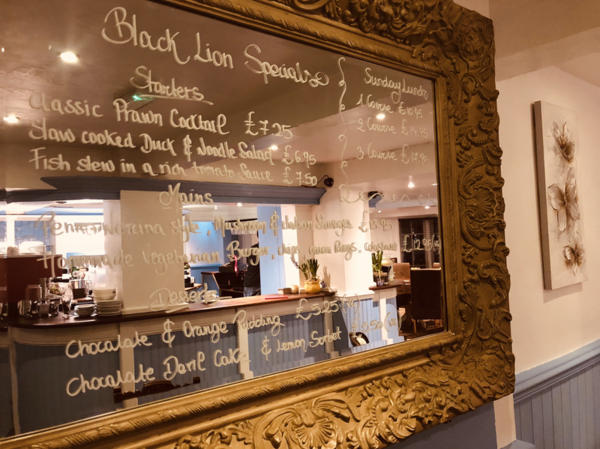 Black Lion Specials
Starters
Classic Prawn Cocktail £7.25
Slow cooked Duck & Noodle Salad £6.95
Fish stew in a rich tomato Sauce £7.50
Mains
Penne Style Mushroom &
Homemade Vegetarian Burger,
Desserts
Chocolate & Orange Pudding £5.25
Chocolate Basil Cake & Lemon Sorbet
Sunday Lunch
1 Course £10.95
2 Course £14.95
3 Course £17.95